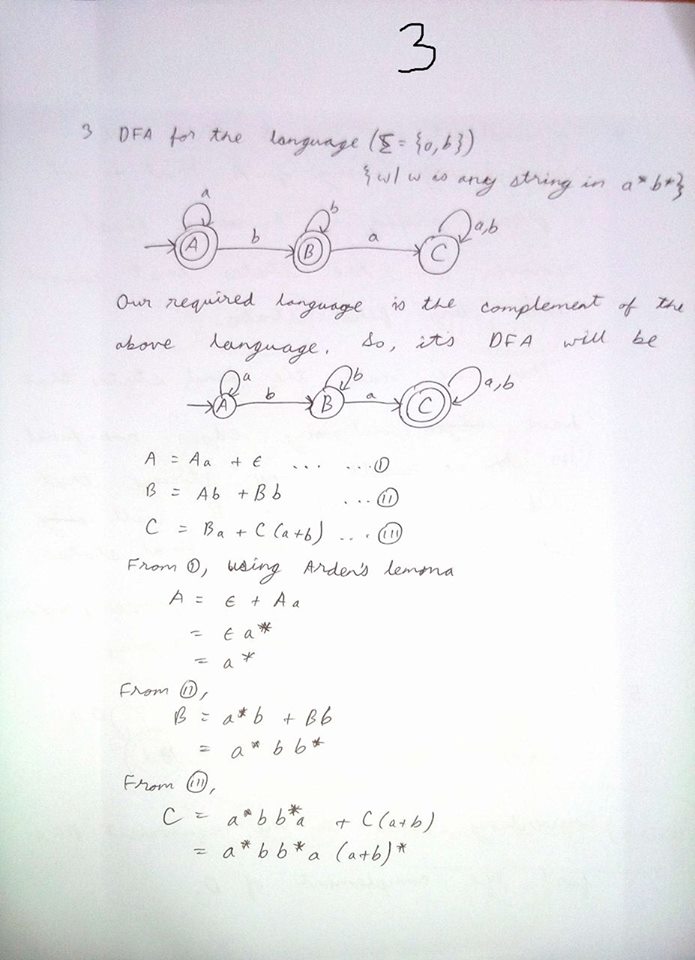 3
3 DFA for the language (Σ = {a,b})
{w/w is any string in a*b*}
a
b
a,b
A
b
B
a
C
Our required language is the complement of the
above language. So, it's DFA will be
a
b
a,b
A
b
B
a
C
A = Aa + ϵ .... ...(I)
B = Ab + Bb ...(II)
C = Ba + C(a+b) ...(III)
From (I), using Arden's lemma
A = ϵ + Aa
= ϵ a*
= a*
From (II),
B = a*b + Bb
= a*bb*
From (III),
C = a*bb*a + C(a+b)
= a*bb*a (a+b)*